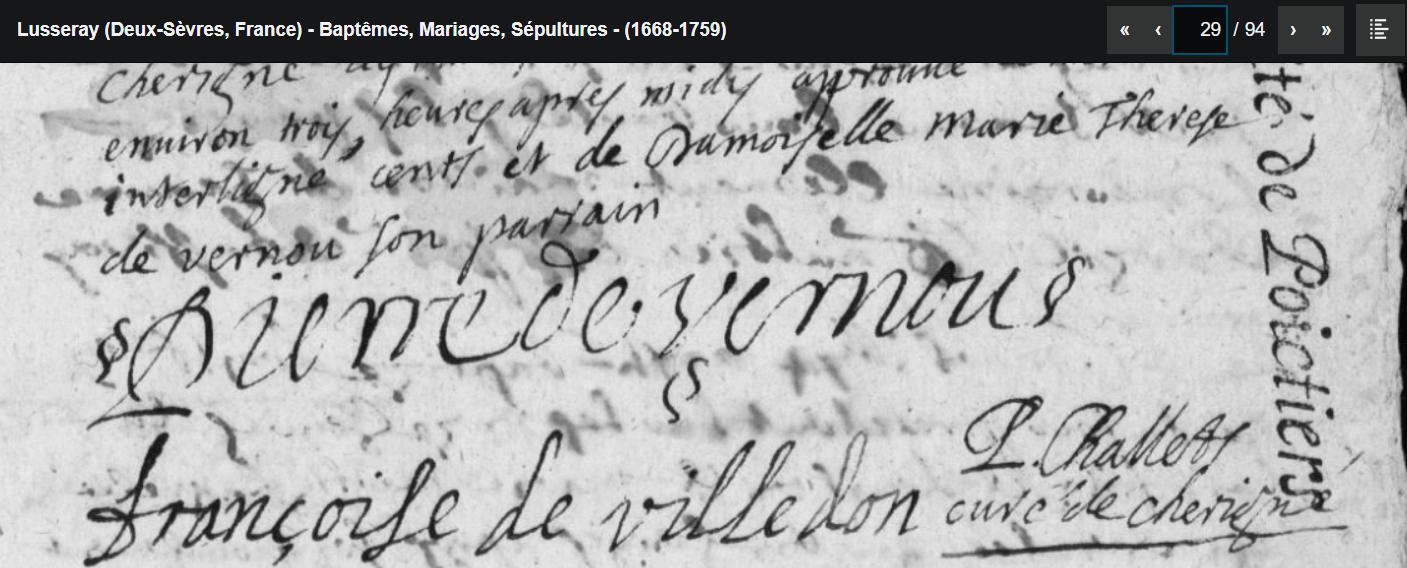 Lusseray (Deux-Sèvres, France) - Baptêmes, Mariages, Sépultures - (1668-1759)
« ‹ 29 / 94 › »
Cherigné
environ trois heures apres midy approuvé
interligne cents et de Damoiselle marie Therese
de vernou son parrain
Pierre de vernou
françoise de villedon
P. Challets
curé de cherigné
té de Poictiers